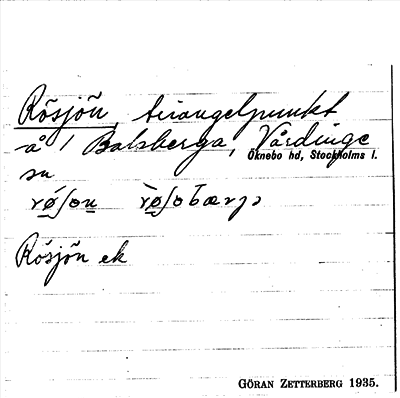 Rösjön, triangelpunkt
å 1 Balsberga, Vårdinge
Öknebo hd, Stockholms l.
sn
Rösjön ek
GÖRAN ZETTERBERG 1935.